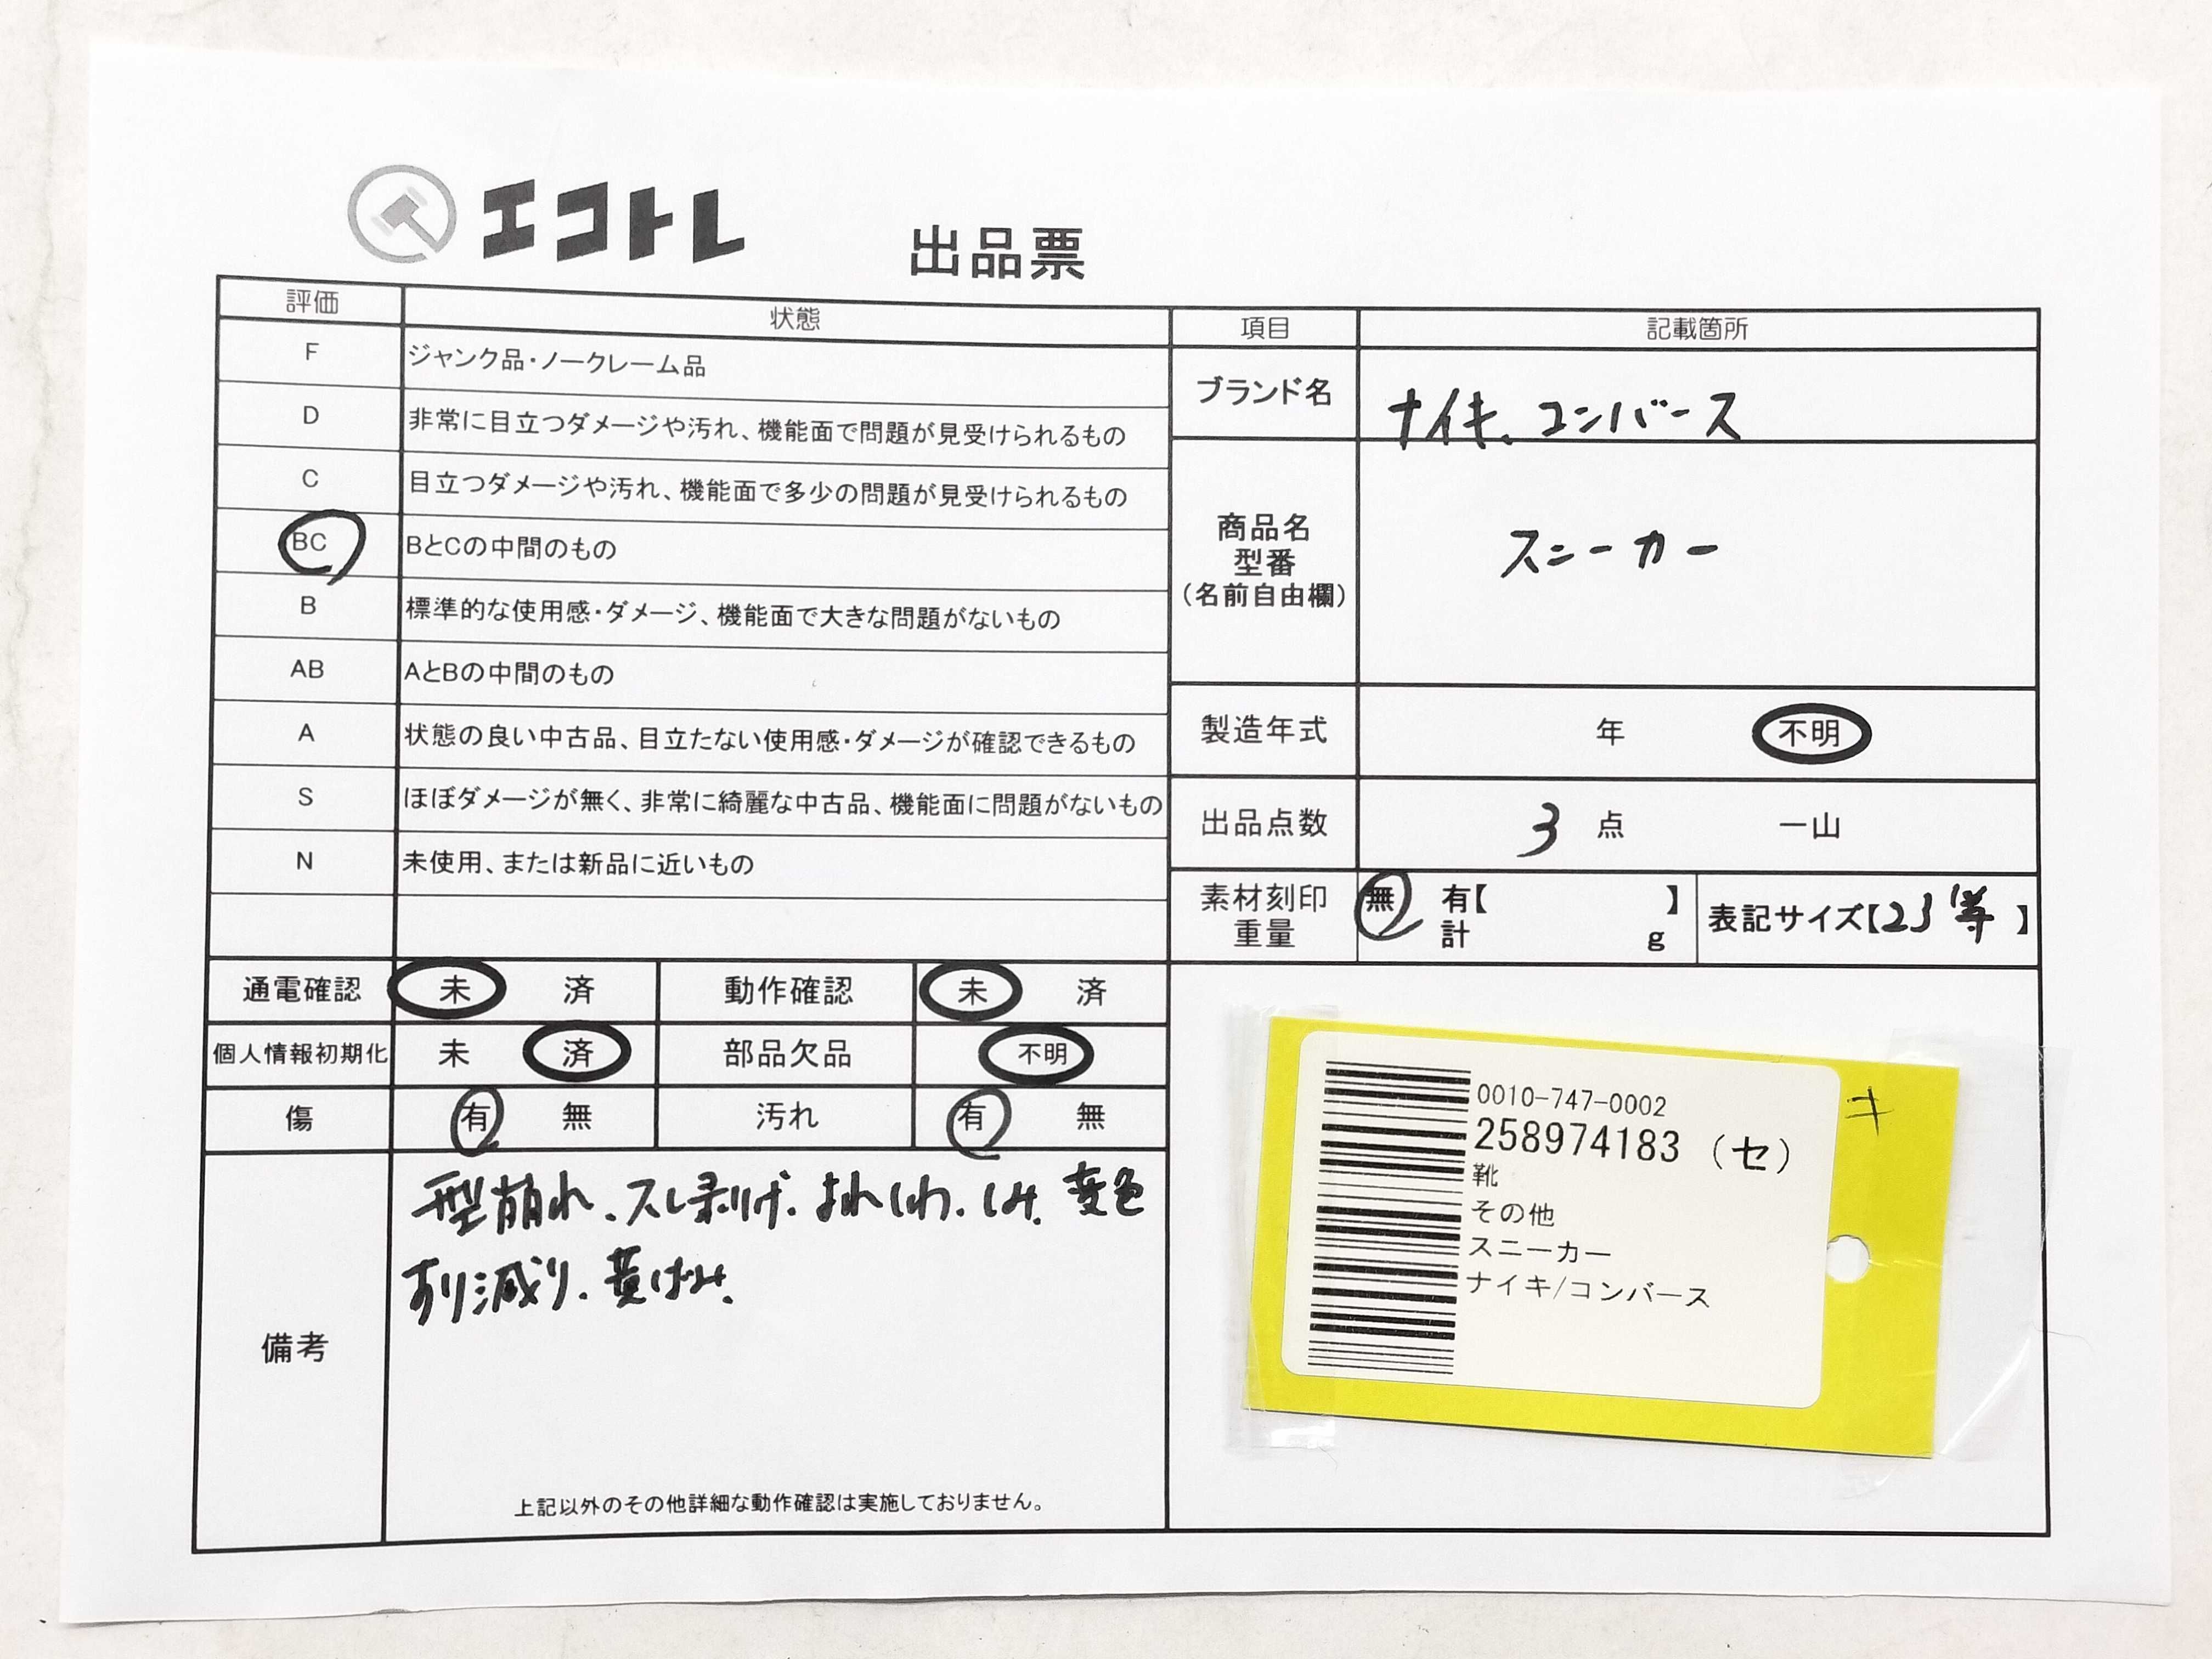 エコトレ
出品票
評価 状態
F ジャンク品・ノークレーム品
D 非常に目立つダメージや汚れ、機能面で問題が見受けられるもの
C 目立つダメージや汚れ、機能面で多少の問題が見受けられるもの
BC BとCの中間のもの
B 標準的な使用感・ダメージ、機能面で大きな問題がないもの
AB AとBの中間のもの
A 状態の良い中古品、目立たない使用感・ダメージが確認できるもの
S ほぼダメージが無く、非常に綺麗な中古品、機能面に問題がないもの
N 未使用、または新品に近いもの
項目 記載箇所
ブランド名 ナイキ、コンバース
商品名
型番
(名前自由欄)
スニーカー
製造年式 年 不明
出品点数 3 点 一山
素材刻印
重量
無 有【 】
計 g
表記サイズ【23等】
通電確認 未 済 動作確認 未 済
個人情報初期化 未 済 部品欠品 不明
傷 有 無 汚れ 有 無
備考
型崩れ、スレ剥げ、よれしわ、しみ、変色
すり減り、黄ばみ、
上記以外のその他詳細な動作確認は実施しておりません。
0010-747-0002
258974183 (セ)
靴
その他
スニーカー
ナイキ/コンバース
キ